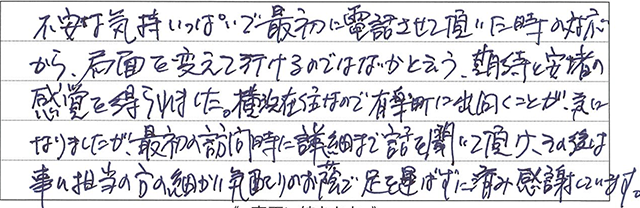 不安な気持いっぱいで最初に電話させて頂いた時の対応
から、局面を変えて行けるのではないかと云う、期待と安堵の
感覚を得られました。横浜在住なので有楽町に出向くことが、気に
なりましたが、最初の訪問時に詳細まで話を聞いて頂け、その後は
事ム担当の方の細かい気配りのお蔭で足を運ばずに済み感謝しています。